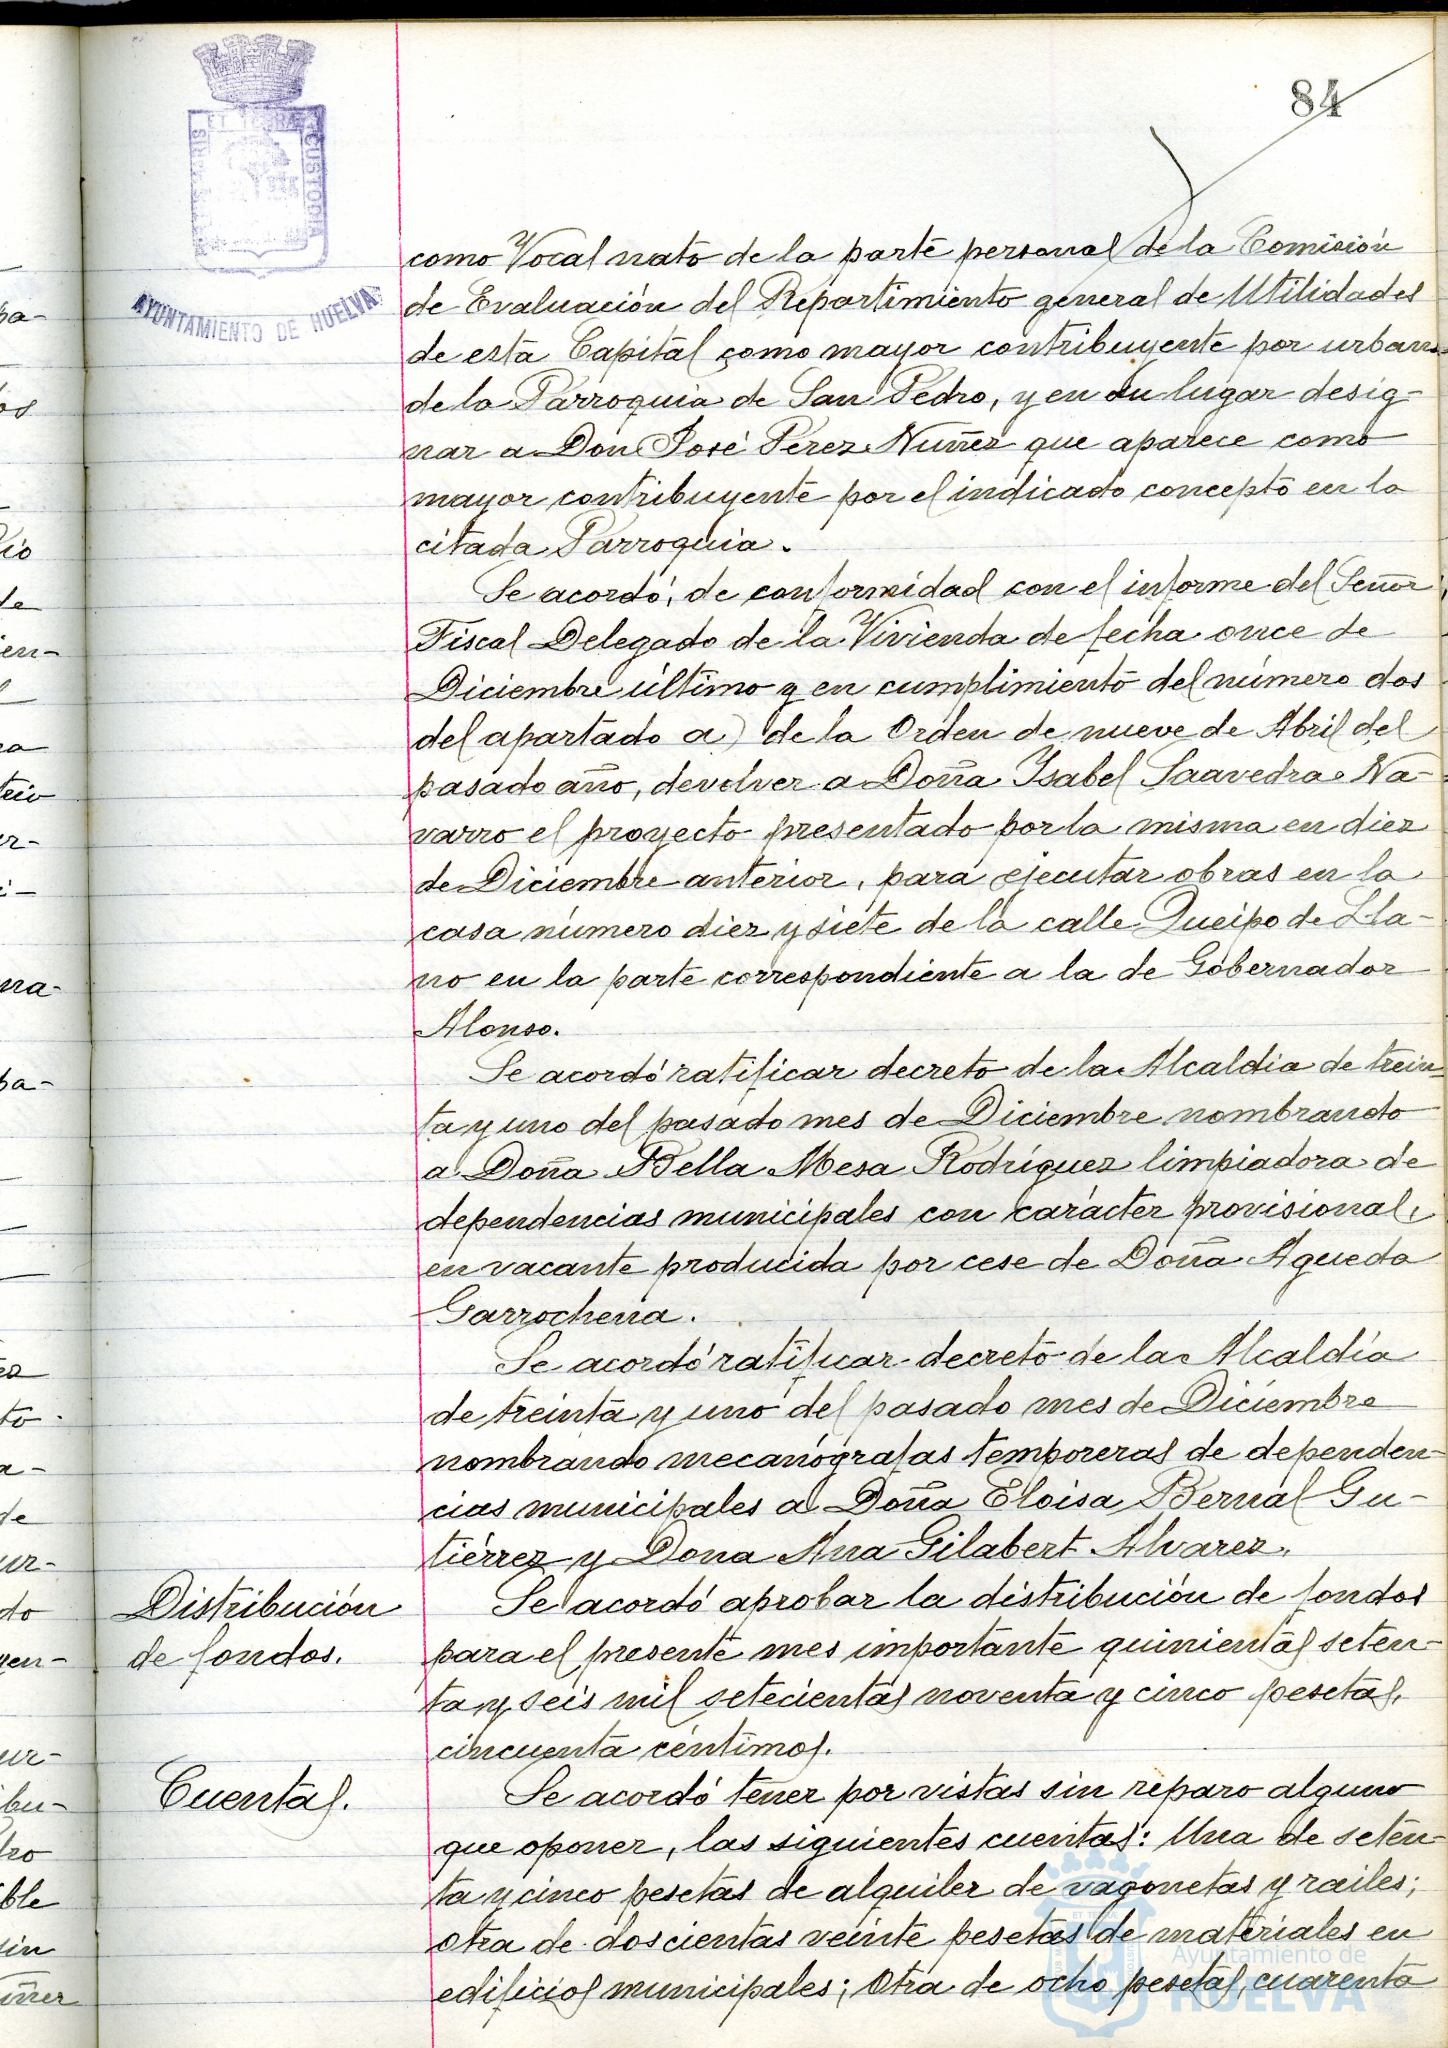 84
PORTUS MARIS ET TERRAE CUSTODIA
AYUNTAMIENTO DE HUELVA
como Vocal nato de la parte personal de la Comisión
de Evaluación del Repartimiento general de Utilidades
de esta Capital como mayor contribuyente por urbana
de la Parroquia de San Pedro, y en su lugar desig-
nar a Don José Perez Nuñez que aparece como
mayor contribuyente por el indicado concepto en la
citada Parroquia.
Se acordó, de conformidad con el informe del Señor
Fiscal Delegado de la Vivienda de fecha once de
Diciembre último y en cumplimiento del número dos
del apartado a) de la Orden de nueve de Abril del
pasado año, devolver a Doña Isabel Saavedra Na-
varro el proyecto presentado por la misma en diez
de Diciembre anterior, para ejecutar obras en la
casa número diez y siete de la calle Queipo de Lla-
no en la parte correspondiente a la de Gobernador
Alonso.
Se acordó ratificar decreto de la Alcaldia de trein-
ta y uno del pasado mes de Diciembre nombrando
a Doña Bella Mesa Rodríguez limpiadora de
dependencias municipales con carácter provisional,
en vacante producida por cese de Doña Agueda
Garrochena.
Se acordó ratificar decreto de la Alcaldía
de treinta y uno del pasado mes de Diciembre
nombrando mecanógrafas temporeras de dependen-
cias municipales a Doña Eloisa Bernal Gu-
tiérrez y Dona Ana Gilabert Alvarez.
Distribución
de fondos.
Se acordó aprobar la distribución de fondos
para el presente mes importante quinientas seten-
ta y seis mil setecientas noventa y cinco pesetas,
cincuenta céntimos.
Cuentas.
Se acordó tener por vistas sin reparo alguno
que oponer, las siguientes cuentas: Una de seten-
ta y cinco pesetas de alquiler de vagonetas y railes;
otra de doscientas veinte pesetas de materiales en
edificios municipales; Otra de ocho pesetas, cuarenta
Ayuntamiento de
HUELVA